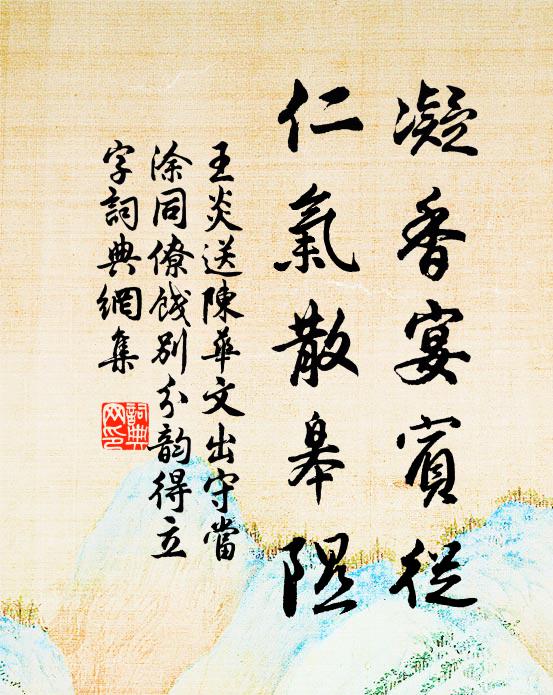 凝香宴賓從
仁氣散皋隰
王炎送陳華文出守當
涂同僚餞別分韵得立
字詞典網集
詞典
网印